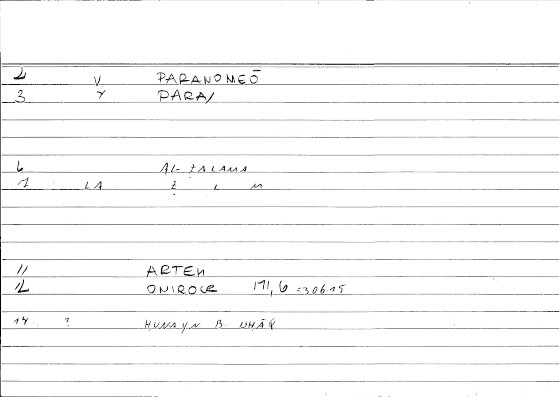 2 V PARANOMEŌ
3 Y PARA/
6 AL-ẒALAMA
7 LA Ẓ L M
11 ARTEM
12 ONIROCR 171,6 =306.15
14 ? ḤUNAYN B. ISḤĀQ